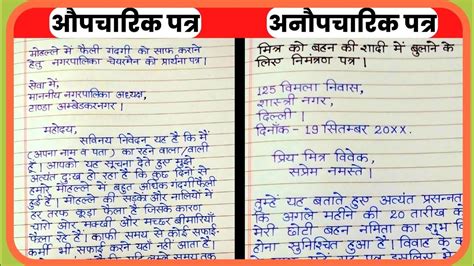 औपचारिक पत्र
मोहल्ले में फैली गंदगी को साफ कराने
हेतु नगरपालिका चेयरमैन को प्रार्थना पत्र।
सेवा में,
माननीय नगरपालिका अध्यक्ष,
टाण्डा अम्बेडकरनगर।
महोदय,
सविनय निवेदन यह है कि मैं
(अपना नाम व पता) का रहने वाला/वाली
हूँ। आपको यह सूचना देते हुए मुझे
अत्यंत दुःख हो रहा है कि कुछ दिनों से
हमारे मोहल्ले में बहुत अधिक गंदगी फैली
हुई है। मोहल्ले की सड़को और नालियों में
हर तरफ कूड़ा फैला है जिसके कारण
चारो ओर मक्खी और मच्छर बीमारियाँ
फैला रहे हैं। काफी समय से कोई सफाई-
कर्मी भी सफाई करने यहाँ नहीं आता है।
अनौपचारिक पत्र
मित्र को बहन की शादी में बुलाने के
लिए निमंत्रण पत्र।
125 विमला निवास,
शास्त्री नगर,
दिल्ली।
दिनाँक - 19 सितम्बर 20xx.
प्रिय मित्र विवेक,
सप्रेम नमस्ते।
तुम्हें यह बताते हुए अत्यंत प्रसन्नत
कि अगले महीने की 20 तारीख क
मेरी छोटी बहन नमिता का शुभ वि
होना सुनिश्चित हुआ है। विवाह के क